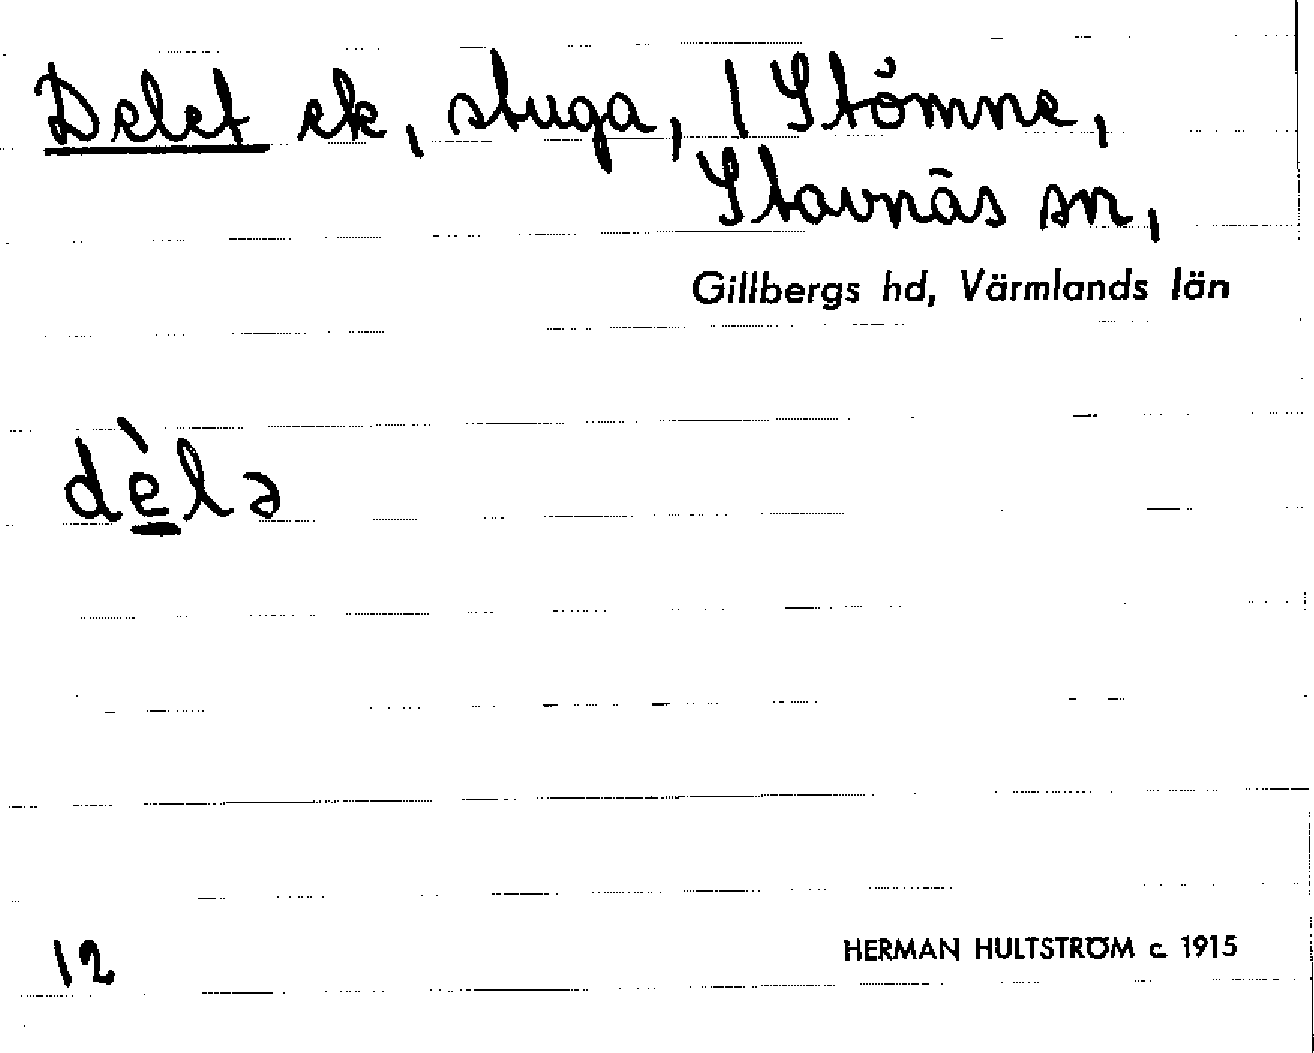 Delet ek, stuga, 1 Stömne,
Stavnäs sn,
Gillbergs hd, Värmlands län
dè̲lə
12
HERMAN HULTSTRÖM c. 1915